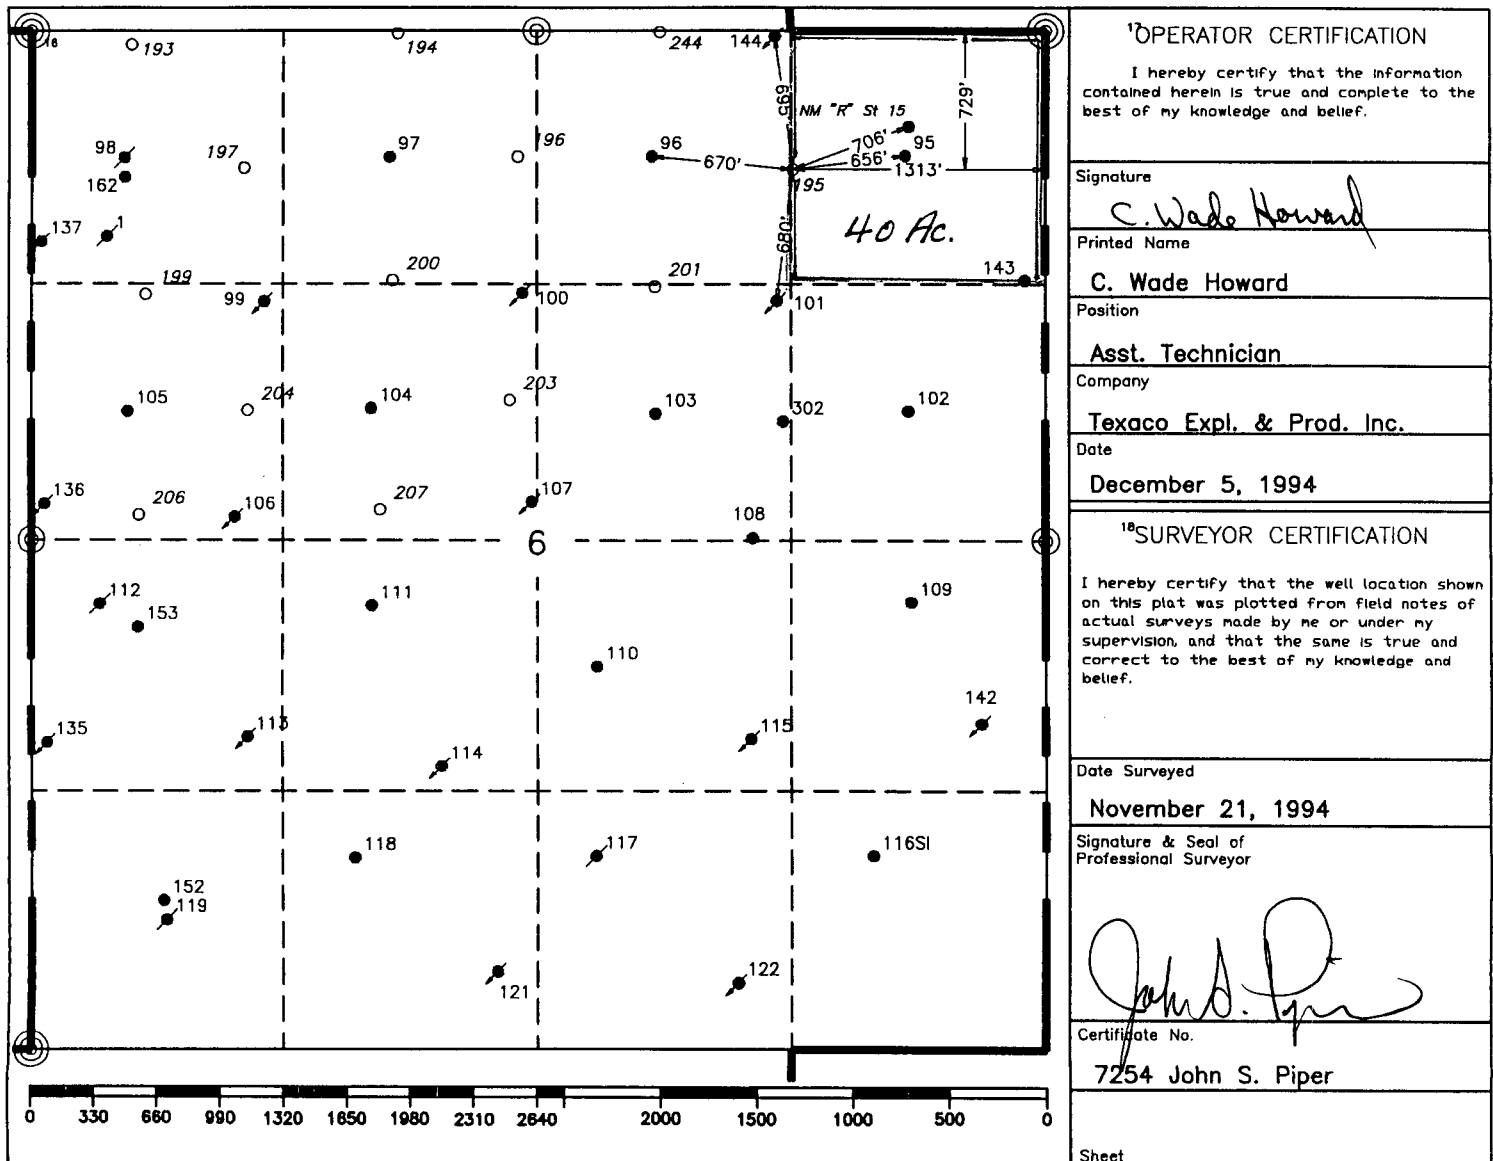 16
193
194
244
144
695'
NM "R" St 15
729'
98
197
97
196
96
670'
706'
95
656'
1313'
195
162
137
1
680'
40 Ac.
199
200
201
143
99
100
101
105
204
104
203
103
302
102
136
206
106
207
107
108
6
112
153
111
109
110
135
113
114
115
142
118
117
116SI
152
119
121
122
0 330 660 990 1320 1650 1980 2310 2640 2000 1500 1000 500 0
17OPERATOR CERTIFICATION
I hereby certify that the information
contained herein is true and complete to the
best of my knowledge and belief.
Signature
C. Wade Howard
Printed Name
C. Wade Howard
Position
Asst. Technician
Company
Texaco Expl. & Prod. Inc.
Date
December 5, 1994
18SURVEYOR CERTIFICATION
I hereby certify that the well location shown
on this plat was plotted from field notes of
actual surveys made by me or under my
supervision, and that the same is true and
correct to the best of my knowledge and
belief.
Date Surveyed
November 21, 1994
Signature & Seal of
Professional Surveyor
John S. Piper
Certificate No.
7254 John S. Piper
Sheet